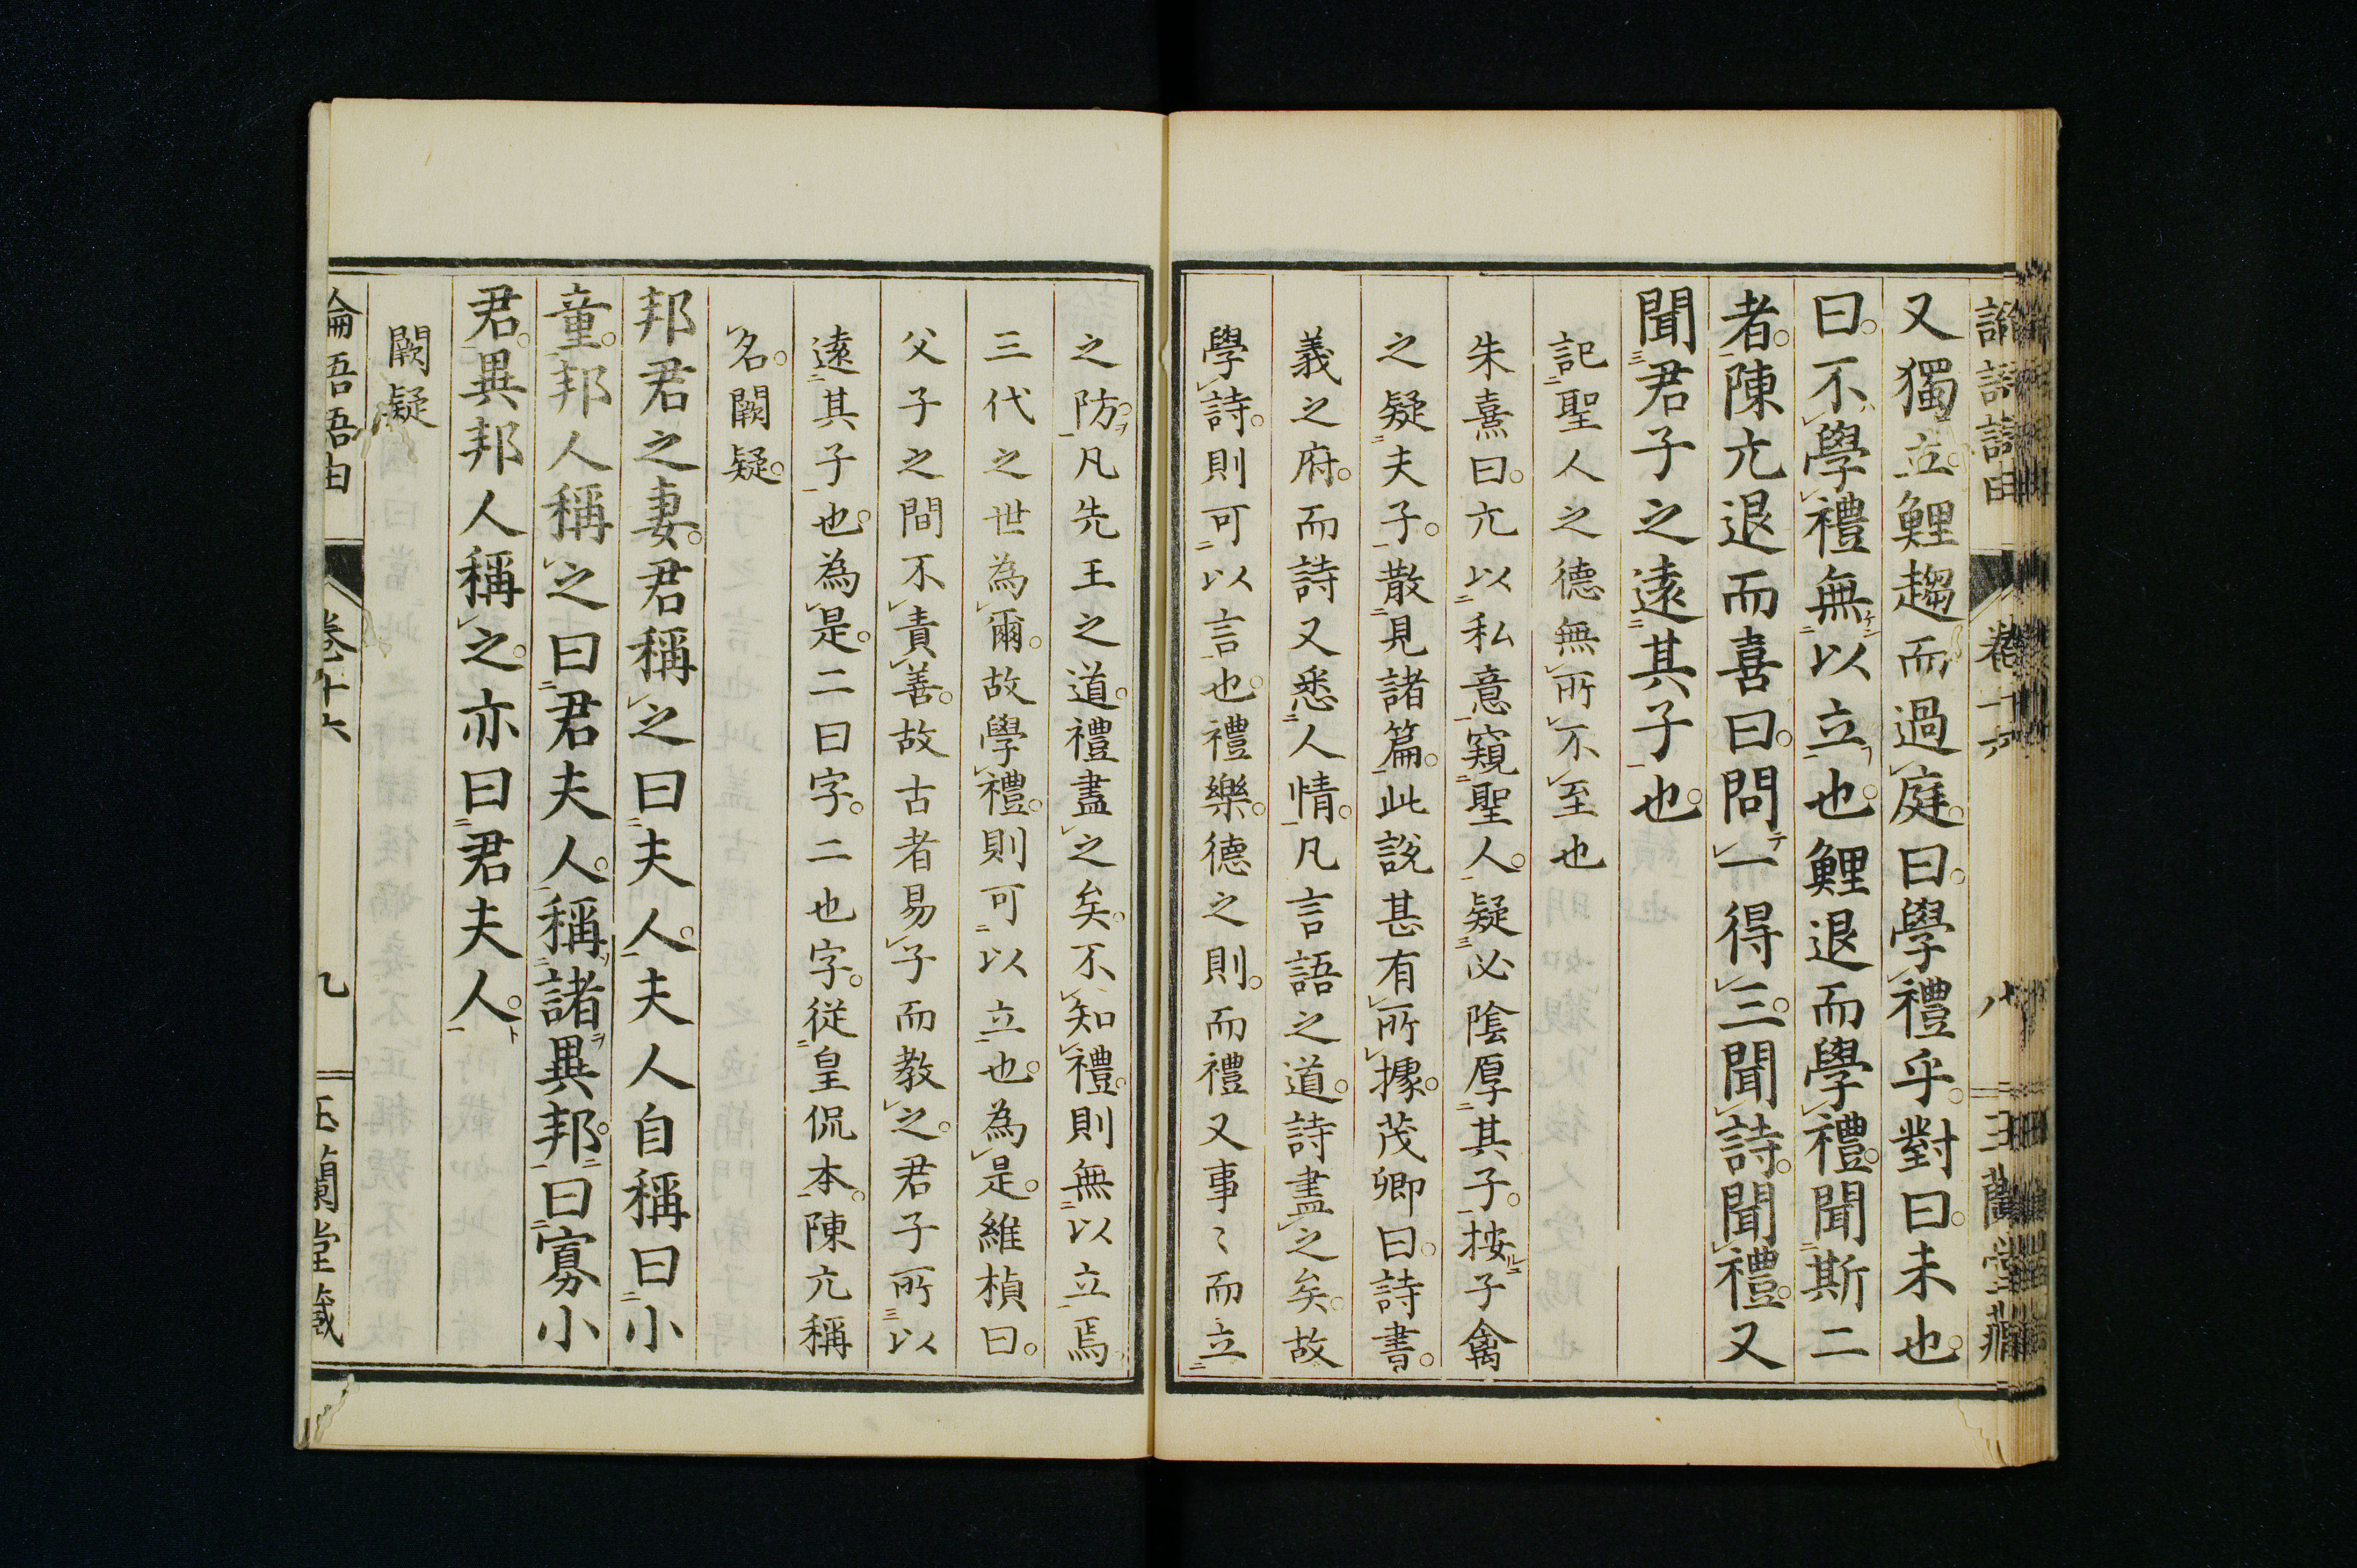 論語語由 卷十六 八 玉蘭堂藏
又獨立鯉趨而過庭。曰。學禮乎。對曰。未也。
曰。不學禮無以立也。鯉退而學禮。聞斯二
者。陳亢退而喜曰。問一得三。聞詩。聞禮。又
聞君子之遠其子也。
記聖人之德無所不至也
朱熹曰。亢以私意窺聖人。疑必陰厚其子。按子禽
之疑夫子。散見諸篇。此說甚有所據。茂卿曰。詩書。
義之府。而詩又悉人情。凡言語之道。詩盡之矣。故
學詩。則可以言也。禮樂。德之則。而禮又事〻而立
之防。凡先王之道。禮盡之矣。不知禮。則無以立焉
三代之世為爾。故學禮。則可以立也。為是。維楨曰。
父子之間不責善。故古者易子而教之。君子所以
遠其子也。為是。二曰字。二也字。從皇侃本。陳亢稱
名。闕疑。
邦君之妻。君稱之曰夫人。夫人自稱曰小
童。邦人稱之曰君夫人。稱諸異邦。曰寡小
君。異邦人稱之。亦曰君夫人。
闕疑
論語語由 卷十六 九 玉蘭堂藏